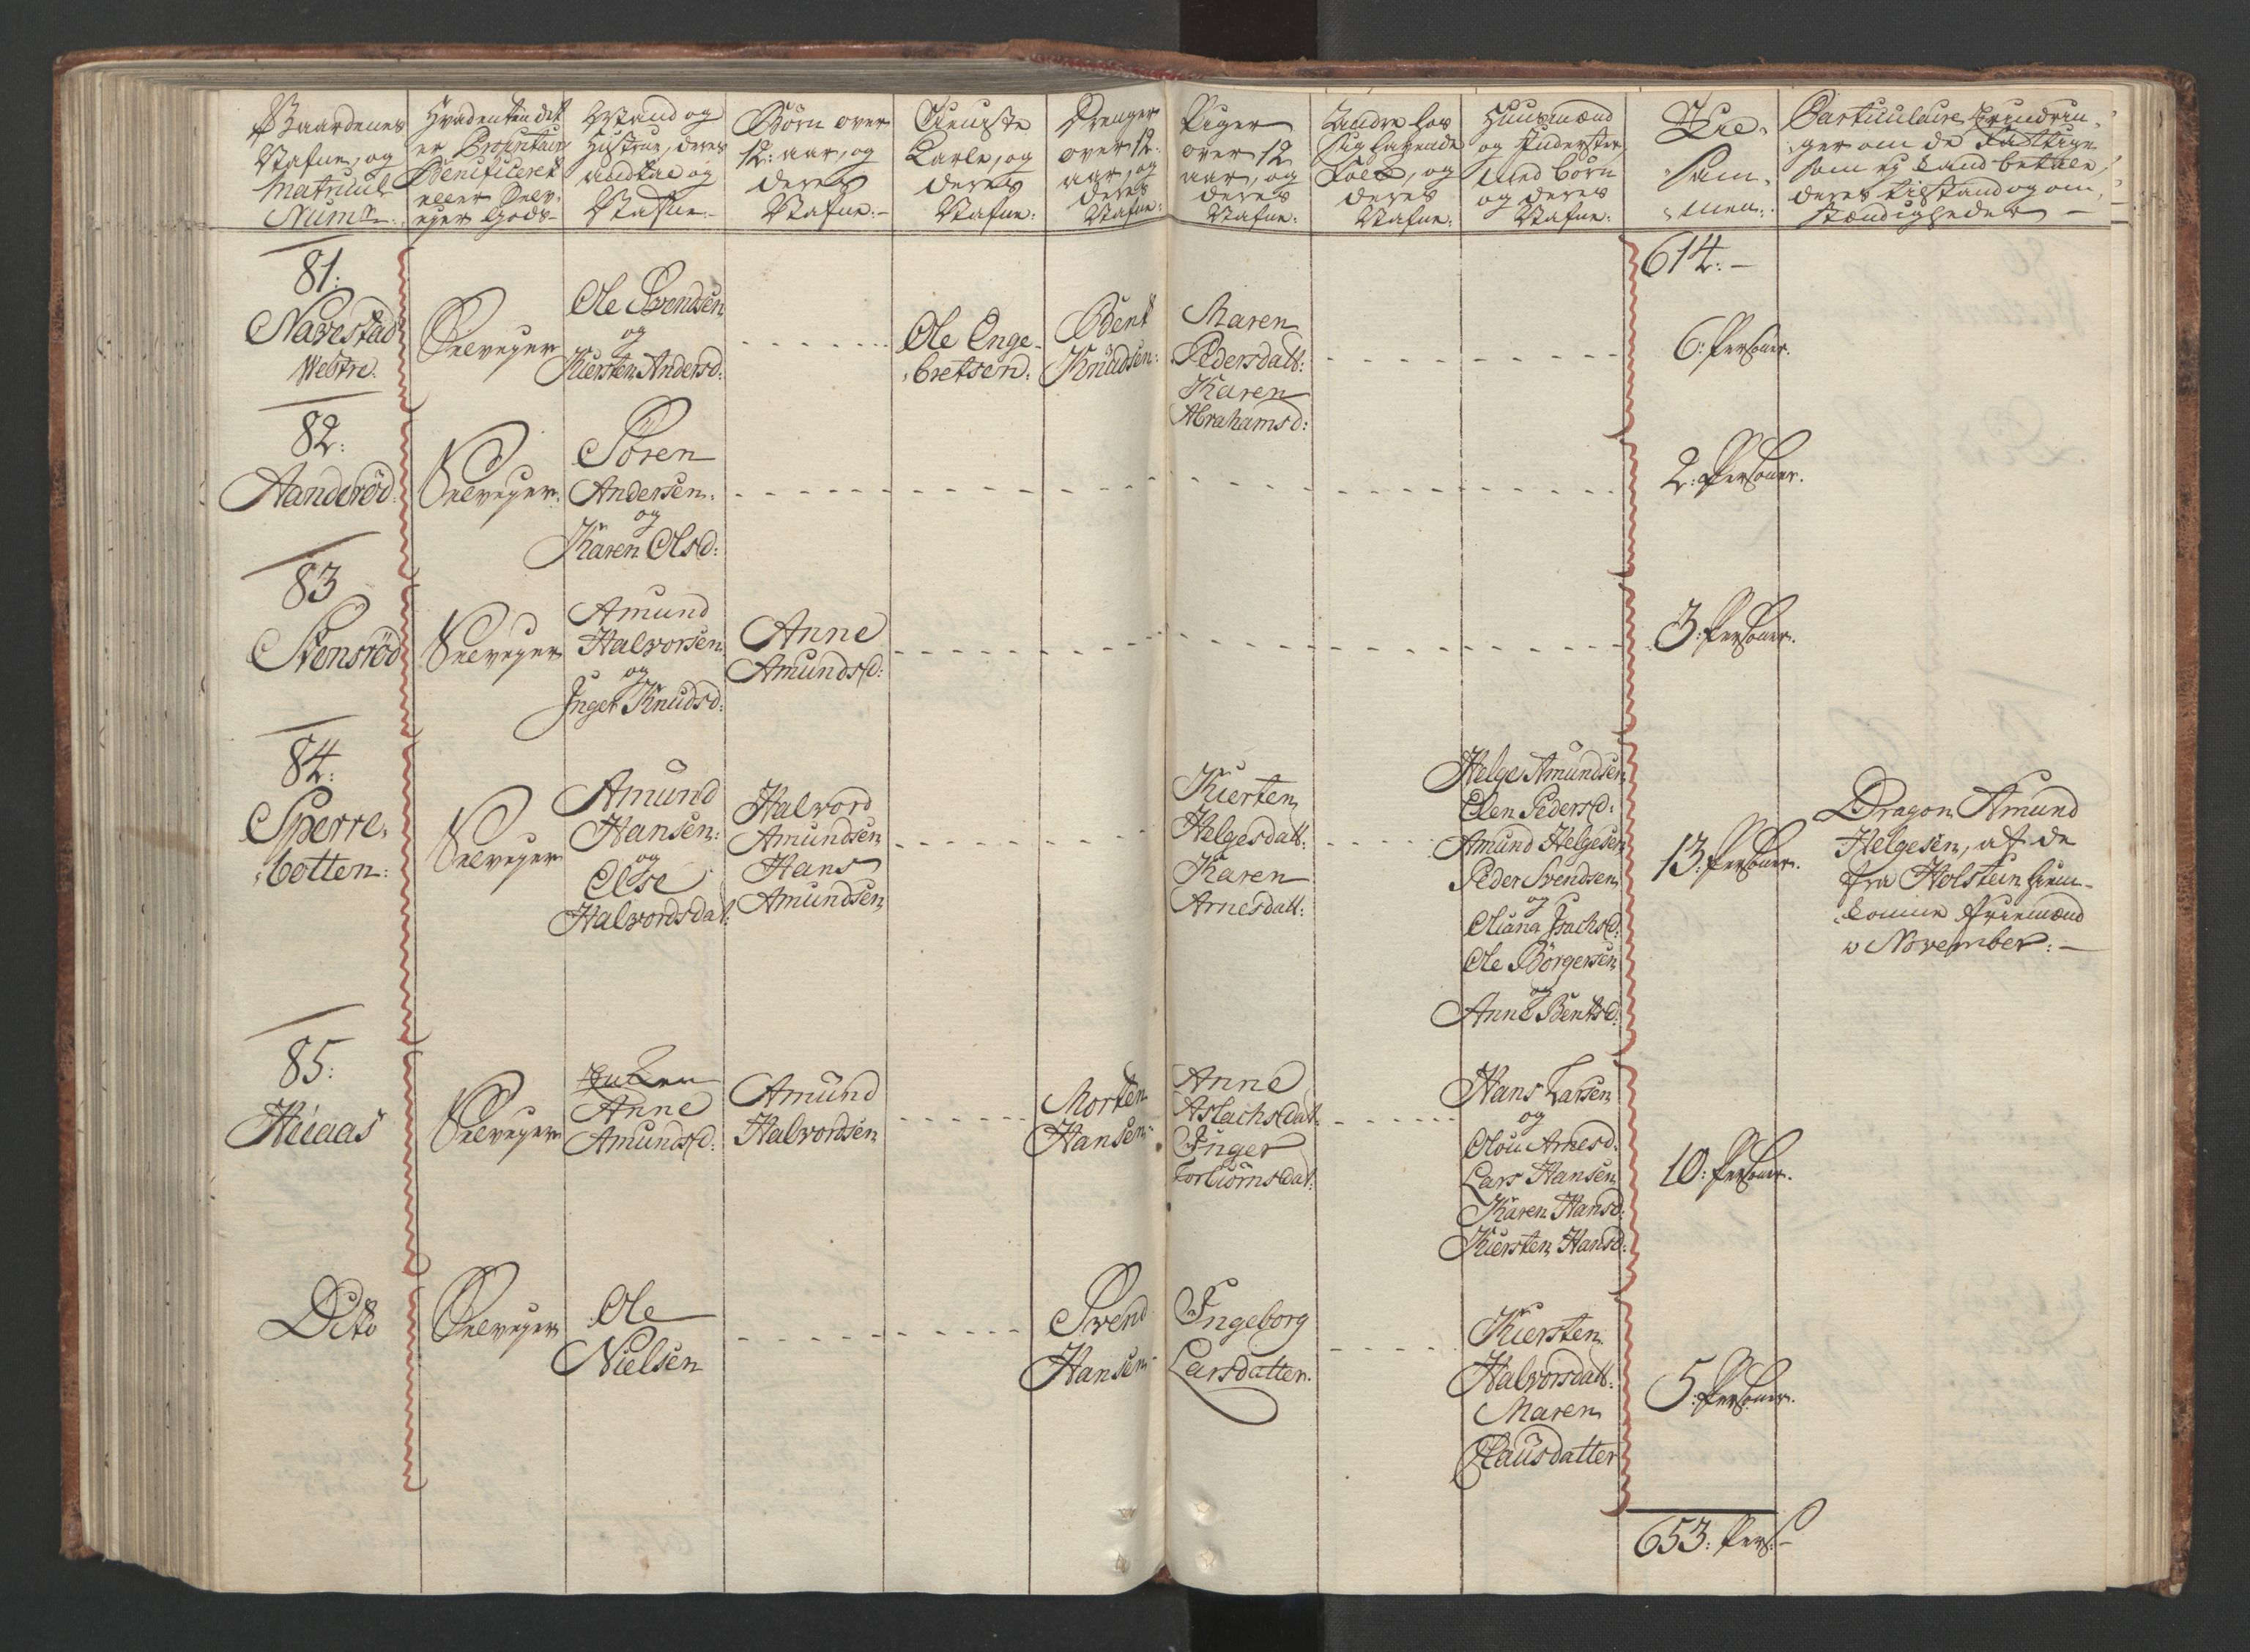 Gaardenes
Nafne, og
Matricul
Num:
Hvad enten det
er Proprietair
Benificeret
eller Selv-
ejer Gods
Mand og
Hustrue, deres
andtal og
Nafne:
Børn over
12: aar, og
deres
Nafne:
Tieniste
Karle, og
deres
Nafne:
Drenger
over 12:
aar, og
deres
Nafne:
Piger
over 12
aar, og
deres
Nafne:
Andre hos
sig havende
Folk, og
deres
Nafne:
Huusmænd
og Inderster
med børn
og deres
Nafne:
Til-
sam-
men:
Particulaire Erindrin-
ger om de Fattige
som ej kand betale,
deres tilstand og om-
stændigheder
614:
81:
Navestad
Westre.
Selvejer
Ole Svendsen
og
Kiersten Andersd:
Ole Enge-
bretsen:
Bent
Knudsen:
Maren
Pedersdatt:
Karen
Abrahamsd:
6: Personer.
82:
Aanderöd:
Selvejer
Sören
Andersen:
og
Karen Olsd:
2: Personer.
83
Stensröd
Selvejer
Amund
Halvorsen
og
Inger Knudsd:
Anne
Amundsd:
3: Personer.
84:
Sperre-
botten:
Selvejer
Amund
Hansen:
og
Else
Halvordsdat:
Halvord
Amundsen
Hans
Amundsen
Kiersten
Helgesdatt:
Karen
Arnesdatt:
Helge Amundsen
Elen Pedersd:
Amund Helgesen
Peder Svendsen
og
Oliana Isachsd:
Ole Börgersen
og
Anne Bentsd:
13: Personer.
Dragon Amund
Helgesen, af de
fra Holsteen hiem-
komne friemænd
November:
85:
Hiiaas
Selvejer
Enken
Anne
Amundsd:
Amund
Halvordsen
Morten
Hansen:
Anne
Aslachsdat:
Inger
Torbiörnsdat:
Hans Larsen
og
Olou Arnesd:
Lars Hansen
Karen Hansd:
Kiersten Hansd:
10: Personer.
Dito
Selvejer
Ole
Nielsen
Svend
Hansen
Ingeborg
Larsdatter.
Kiersten
Halvorsdatt:
Maren
Clausdatter
5: Personer.
653: Pers: